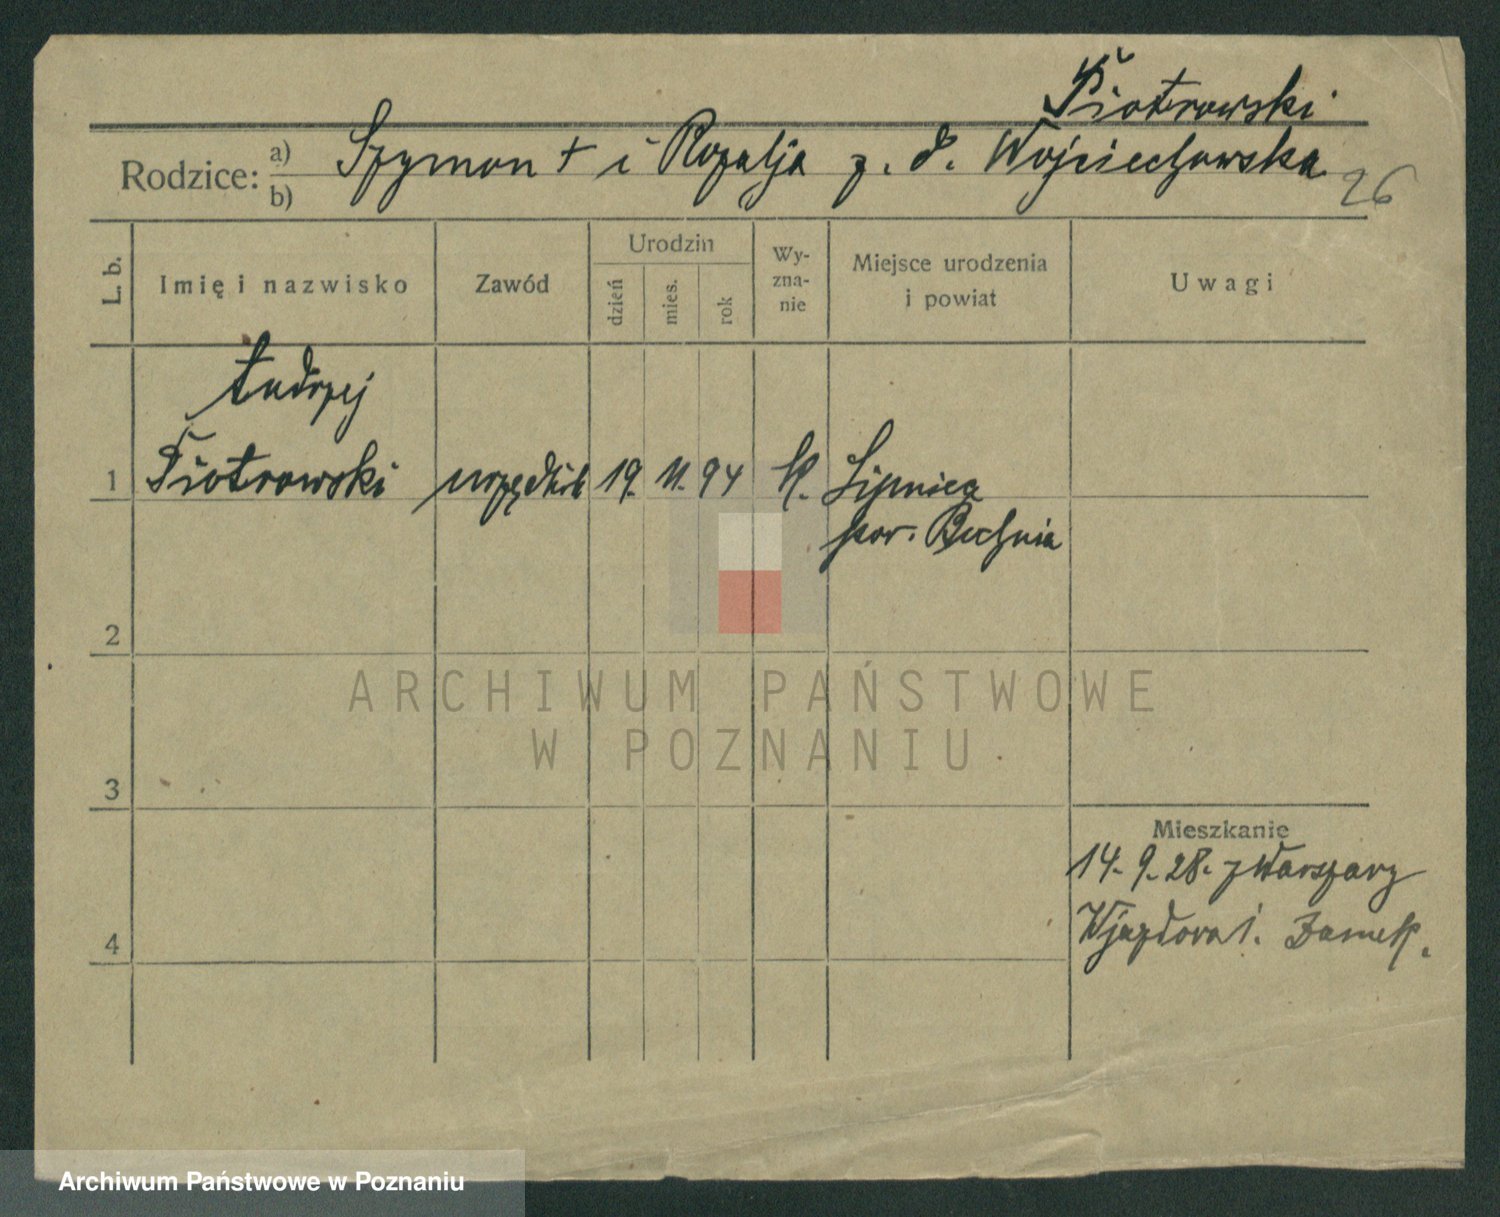 Piotrowski
Rodzice: a) b) Szymon + i Rozalja z. d. Wojciechowska 26
L. b. Imię i nazwisko Zawód Urodzin dzień mies. rok Wyznanie Miejsce urodzenia i powiat Uwagi
Andrzej
1 Piotrowski urzędnik 19. 11. 94 kt. Lipnica
pow. Bochnia
2
ARCHIWUM PAŃSTWOWE
W POZNANIU
3
Mieszkanie
14. 9. 28. z Warszawy
4 Wjazdowa 1. Zamek.
Archiwum Państwowe w Poznaniu